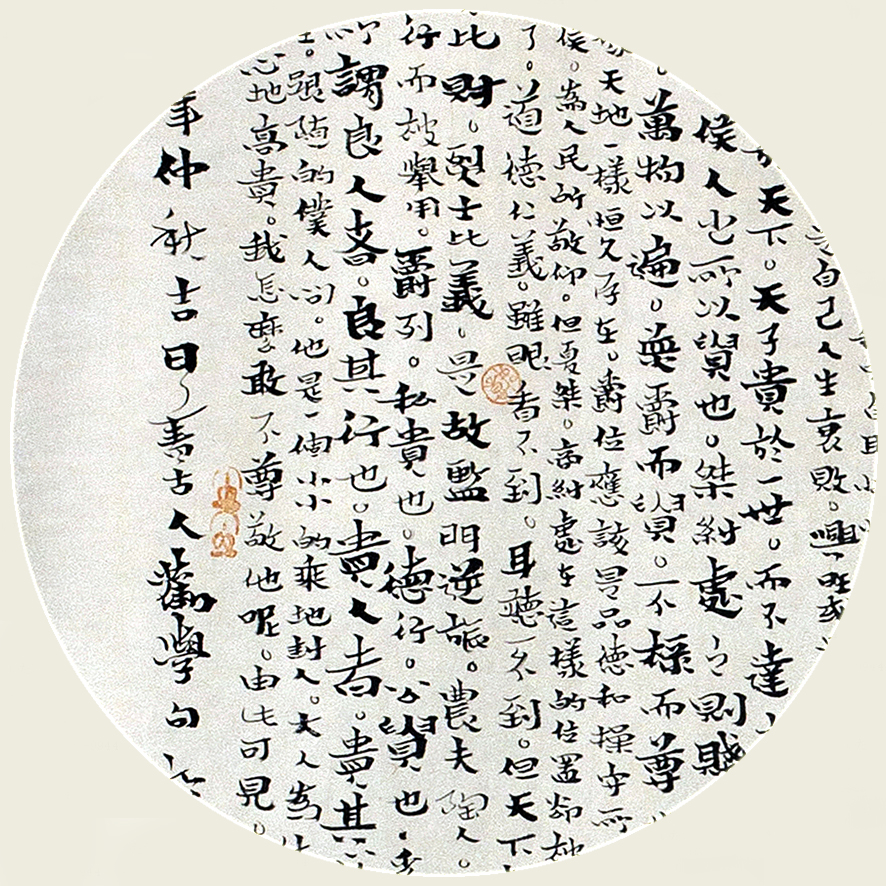 自己人生衰敗。興旺或
天下。天子貴於一世。而不達
侯人之所以貴也。桀紂處之則賤
。萬物以遍。無爵而貴。不祿而尊
天地一樣恒久存在。爵位應該是品德和操守所
侯。為人民所敬仰。但夏桀。商紂處在這樣的位置卻被
了。道德仁義。雖眼看不到。耳聽不到。但天下
比財。烈士比義。是故鑒明逆旅。農夫陶人。
行而被舉用。爵列。私貴也。德行。公貴也。
謂良人者。良其行也。貴人者。貴其
。跟隨的僕人问。他是一個小小的乘地封人。大人為什
心地高貴。我怎麼敢不尊敬他呢。由此可見。
年仲秋吉日書古人勸學句